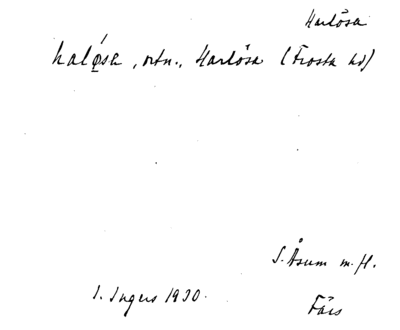 Harlösa
halǿsa, ortn., Harlösa (Frosta hd)
S. Åsum m. fl.
I. Ingers 1930.
Färs